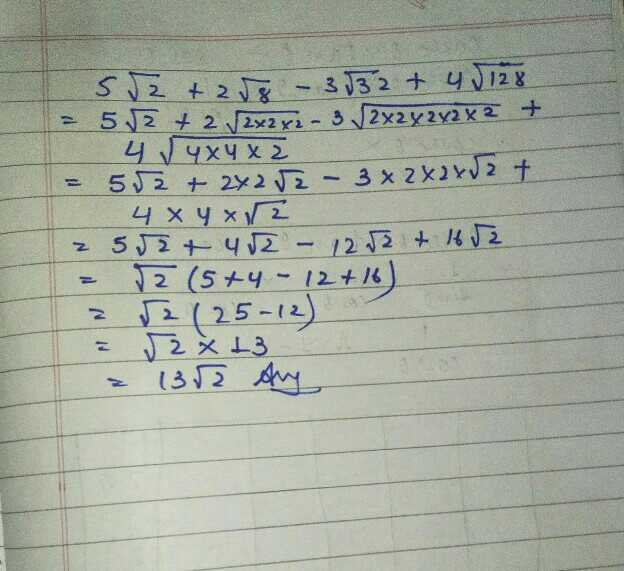 5√2 + 2√8 - 3√32 + 4√128
= 5√2 + 2√2×2×2 - 3√2×2×2×2×2 +
4√4×4×2
= 5√2 + 2×2√2 - 3×2×2×√2 +
4×4×√2
= 5√2 + 4√2 - 12√2 + 16√2
= √2 (5+4-12+16)
= √2 (25-12)
= √2 × 13
= 13√2 Ans